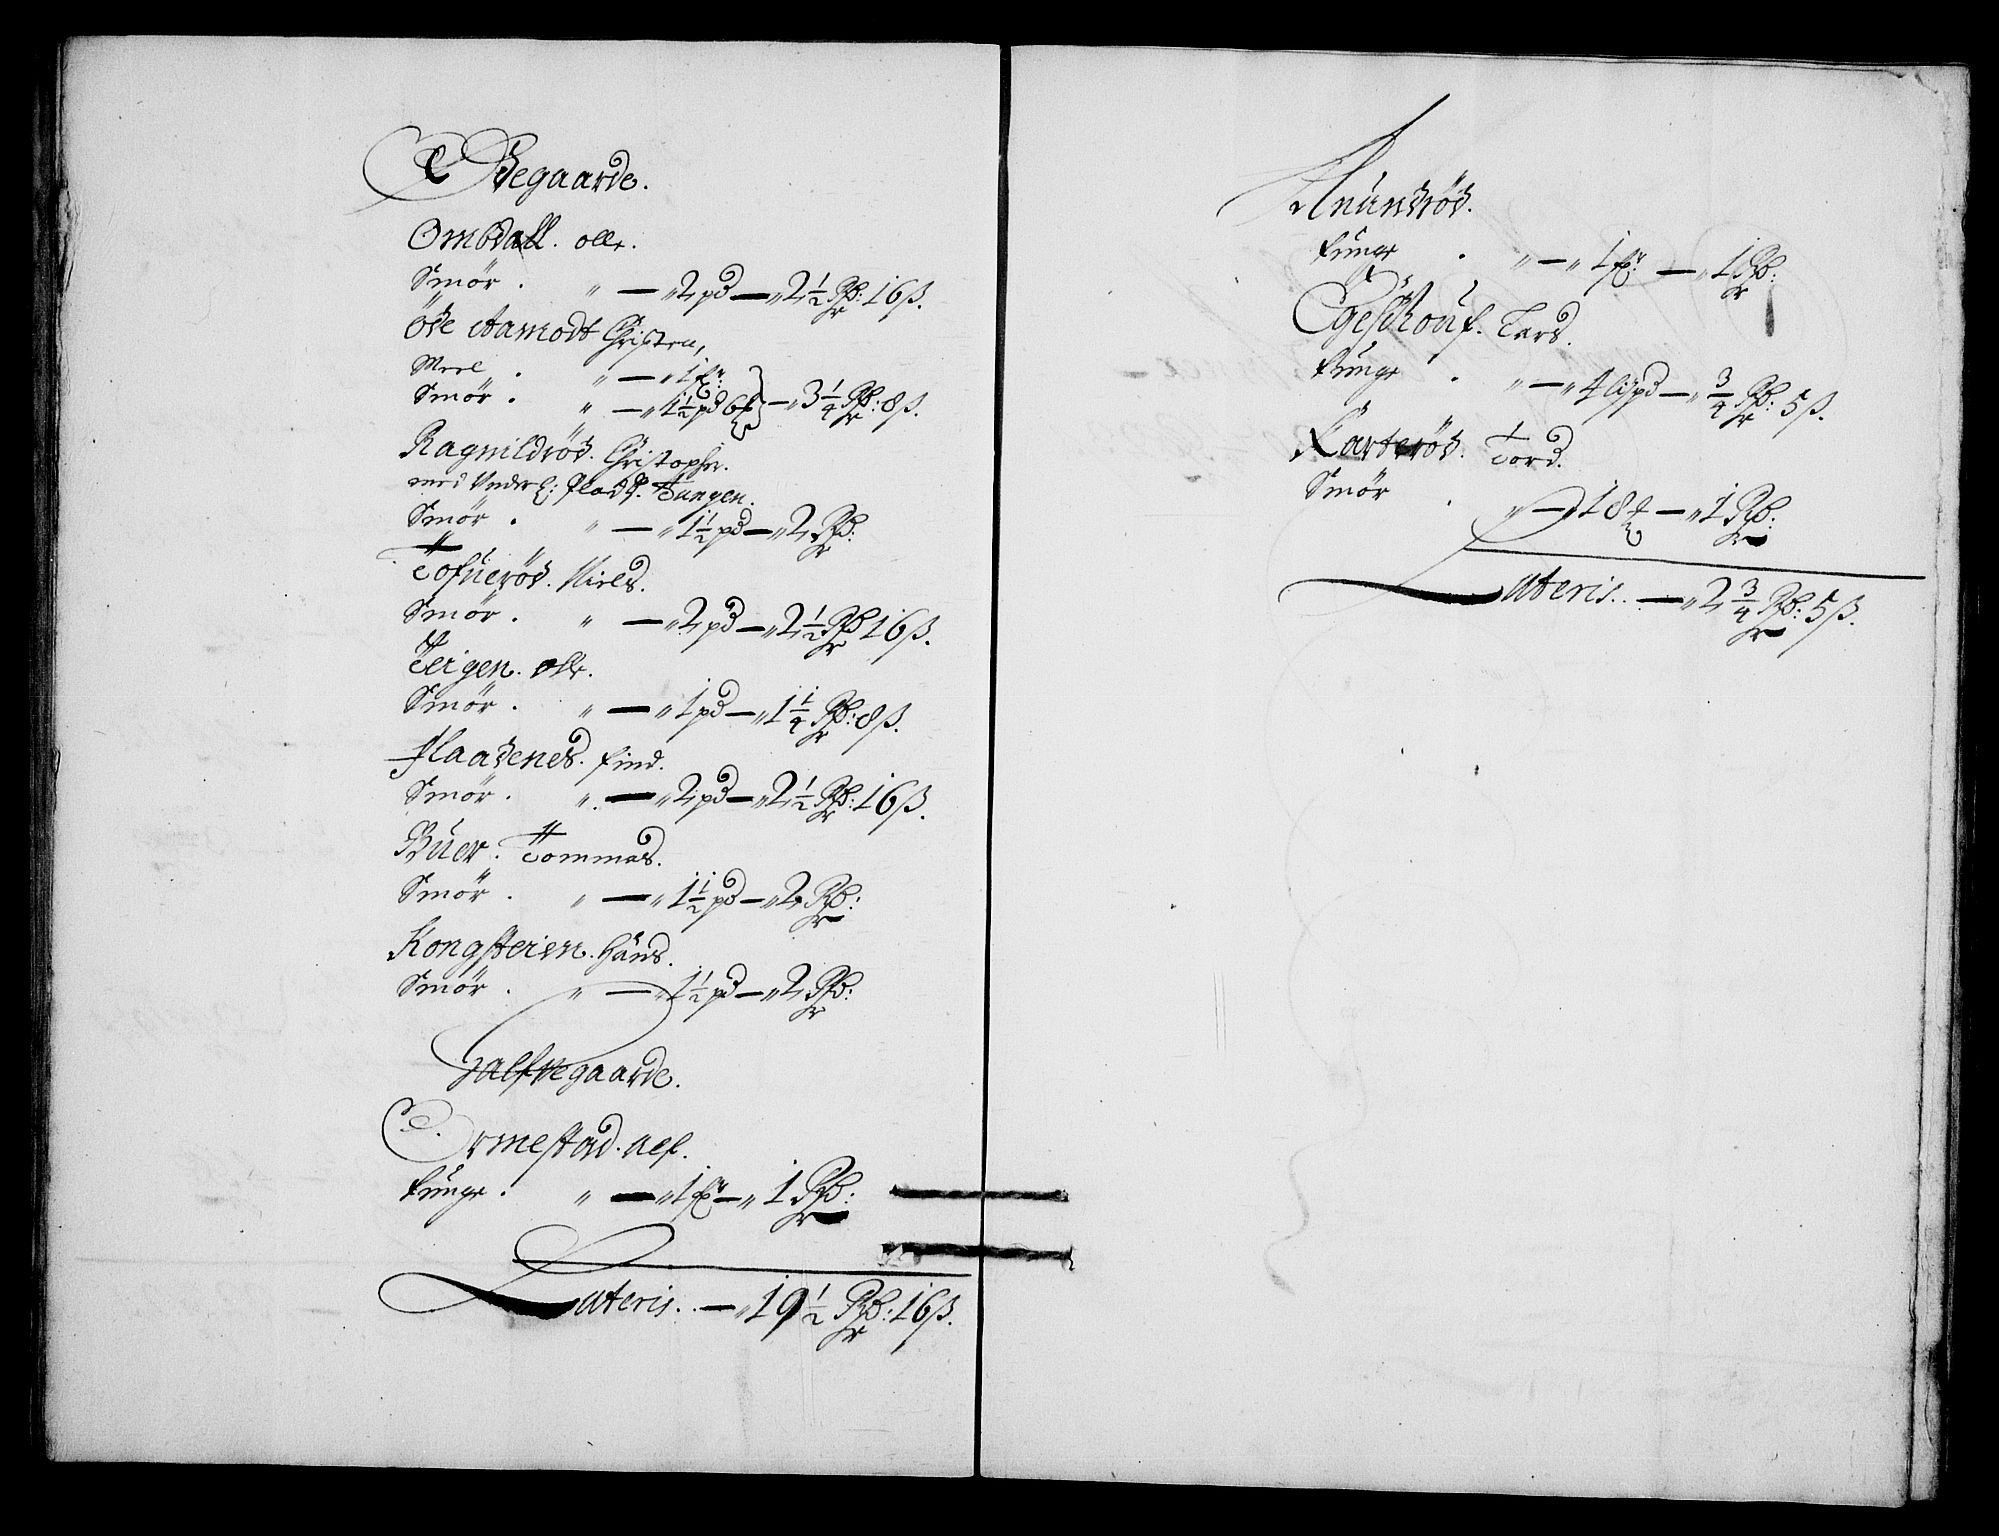 Ødegaarde.
Ombdall. Olle.
Smör. " — " 2 pd — " 2 1/2 Rd: 16 ß.
Öde Aamodt Christen,
Meel . " — " 1 fr:
Smör . " — " 1 1/2 pd 6 — " 3 1/4 Rd: 8 ß.
Ragnildröd. Christopher.
med Underl: Plads. Tangen.
Smör . " — " 1 1/2 pd — " 2 Rd:
Tofueröd. Niels.
Smör . " — " 2 pd — " 2 1/2 Rd 16 ß.
Teigen. Olle.
Smör . " — " 1 pd — " 1 1/4 Rd: 8 ß.
Flaadenes. Find.
Smör . " — " 2 pd — " 2 1/2 Rd: 16 ß.
Buer. Tommas.
Smör . " — " 1 1/2 pd — " 2 Rd:
Kongsteien. Hans.
Smör . " — " 1 1/2 pd — " 2 Rd:
Halfvegaarde.
Ormestad. Alf.
Tunge . " — " 1 fr — " 1 Rd:
Lateris. — " 19 1/2 Rd: 16 ß.
Anundröd.
Tunge . " — " 1 fr: — " 1 Rd:
Egeskouf. Lars.
Tunge . " — " 4 lispd — " 3/4 Rd: 5 ß.
Karteröd. Tord.
Smör . " — " 18 — " 1 Rd:
Lateris. — " 2 3/4 Rd: 5 ß.